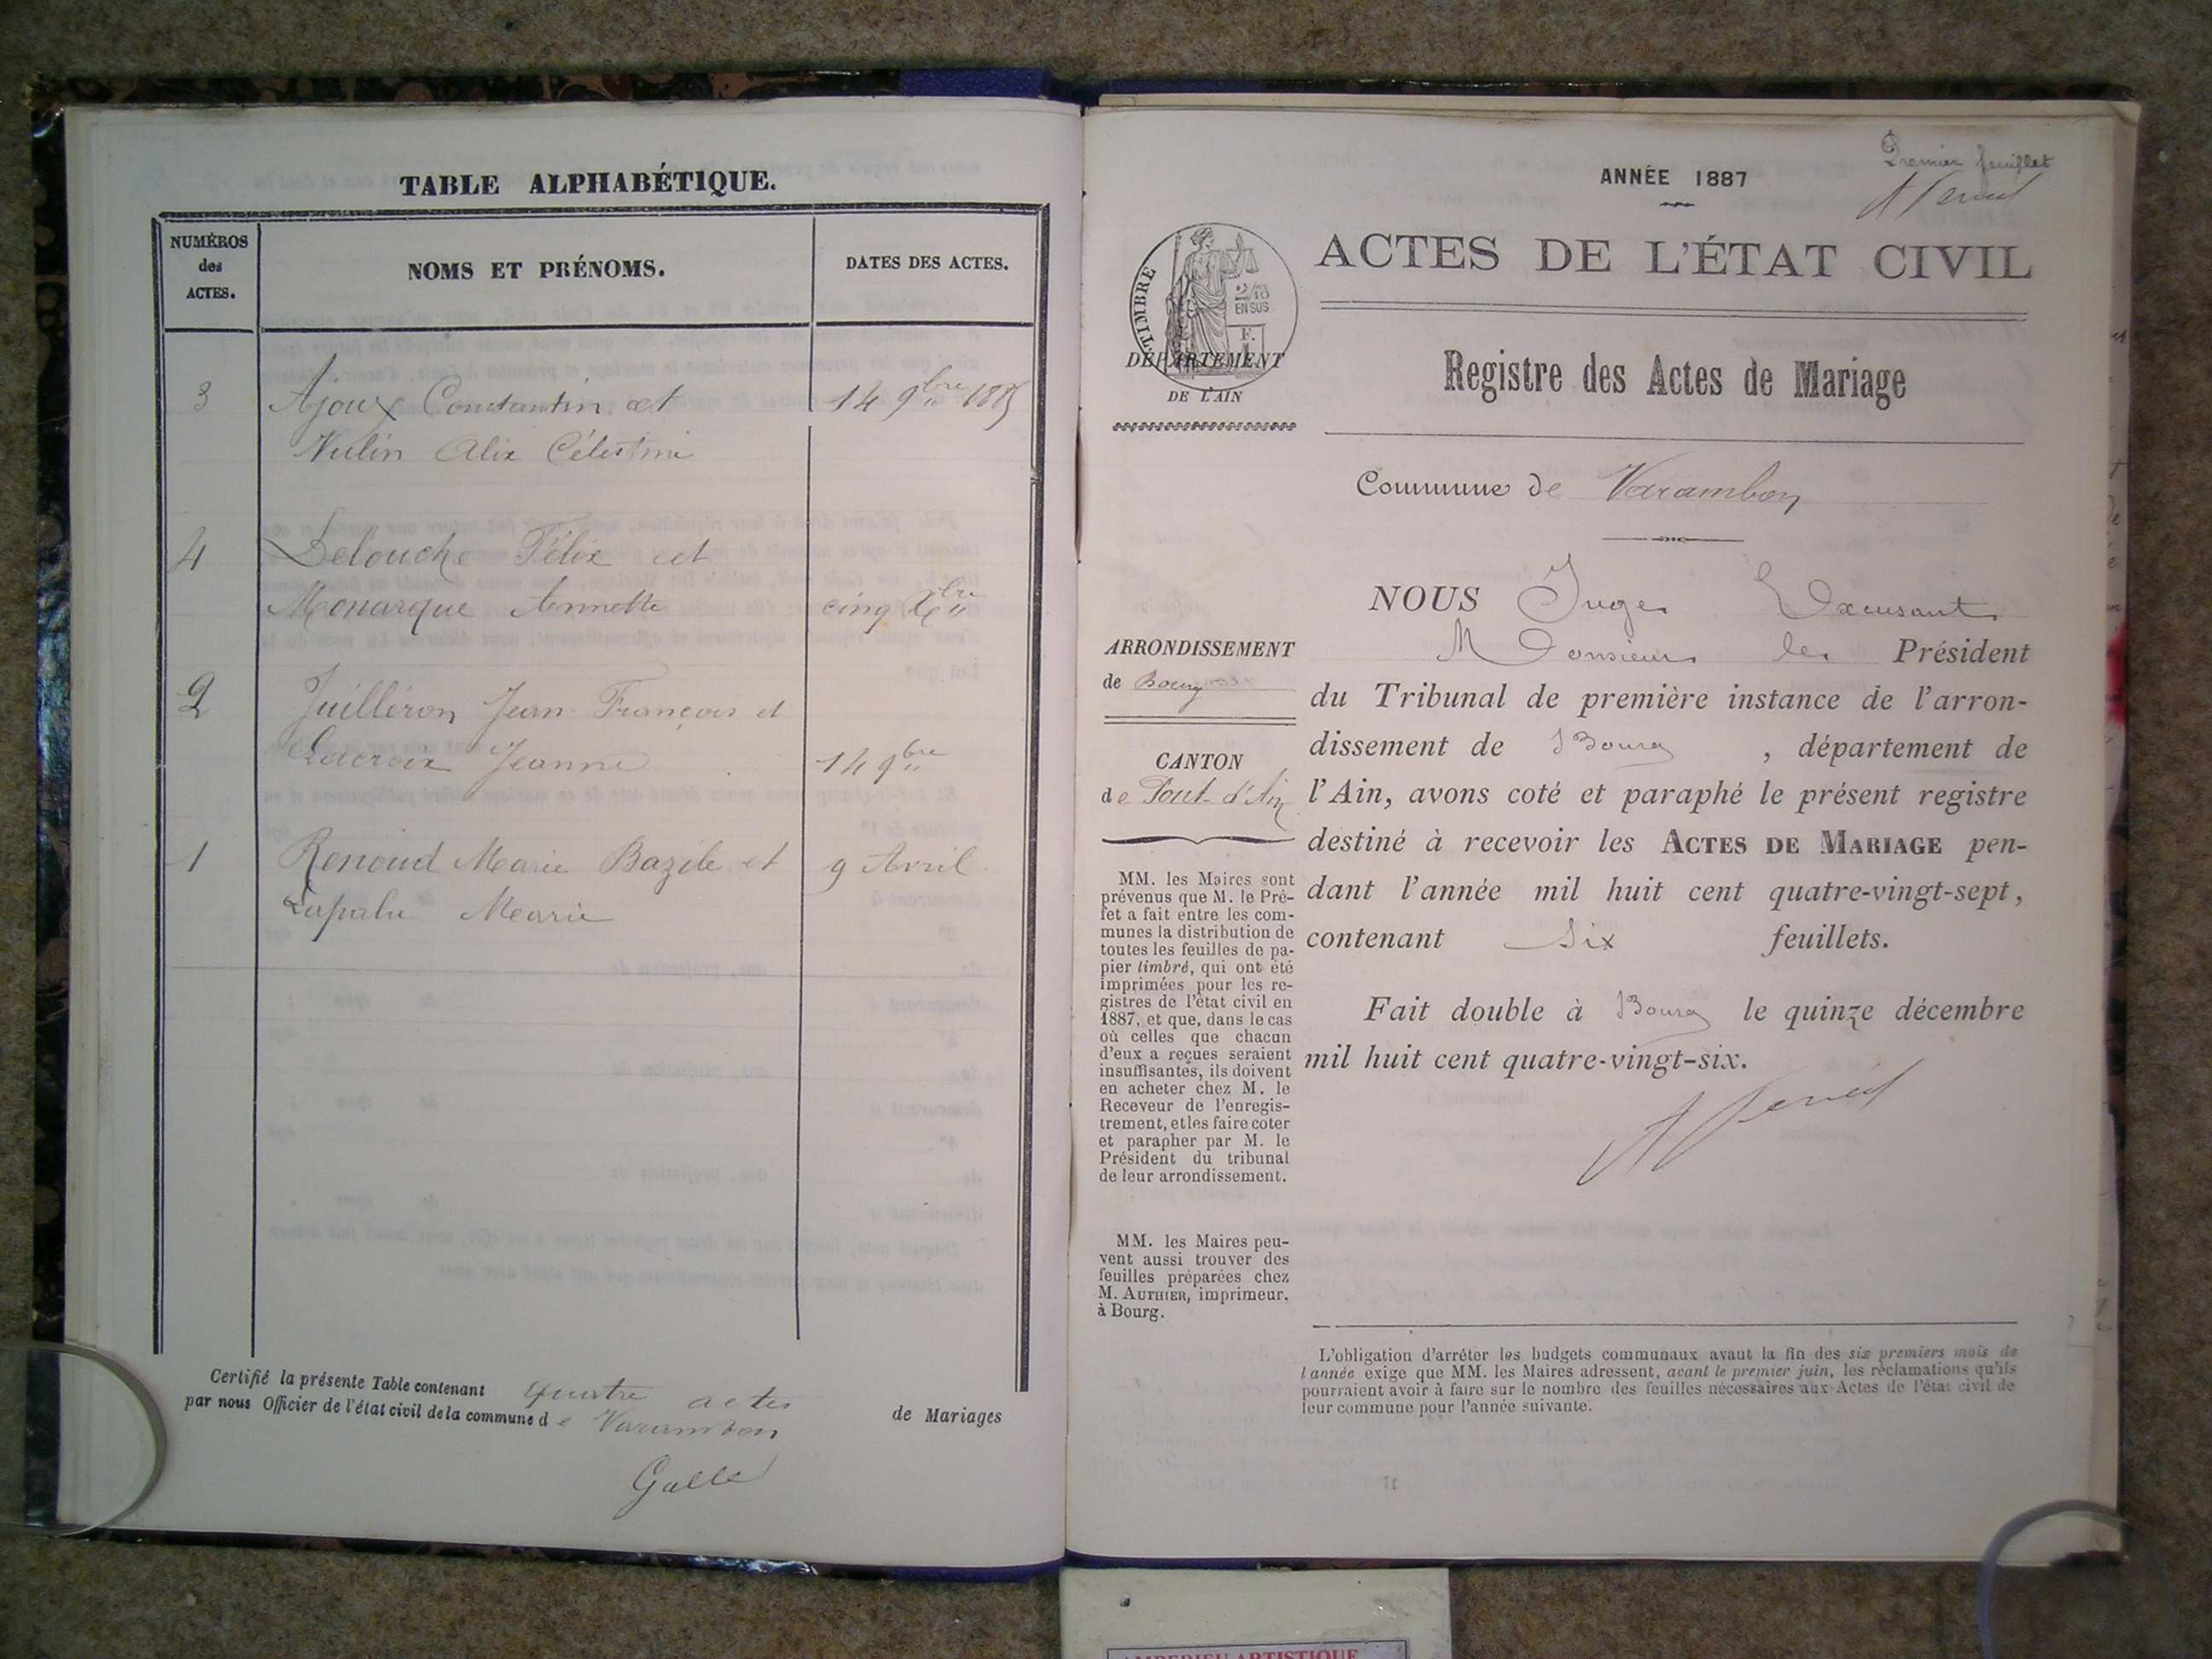 TABLE ALPHABÉTIQUE.
NUMÉROS
des
ACTES.
NOMS ET PRÉNOMS.
DATES DES ACTES.
3 Ajoux Constantin et 14 9bre
Alix Célestine
4 Delouche Félix et
Monarque Annette cinq Xbre
2 Juilléron Jean François et
Lacroix Jeanne 14 9bre
1 Renoud Marie Bazile et 9 Avril
Lapalu Marie
Certifié la présente Table contenant quatre actes de Mariages
par nous Officier de l'état civil de la commune de Varambon
Galle
Premier feuillet
ANNÉE 1887
TIMBRE
2/10
EN SUS
DÉPARTEMENT
DE L'AIN
ACTES DE L'ÉTAT CIVIL
Registre des Actes de Mariage
Commune de Varambon
ARRONDISSEMENT
de Bourg
CANTON
de Pont-d'Ain
MM. les Maires sont
prévenus que M. le Pré-
fet a fait entre les com-
munes la distribution de
toutes les feuilles de pa-
pier timbré, qui ont été
imprimées pour les re-
gistres de l'état civil en
1887, et que, dans le cas
où celles que chacun
d'eux a reçues seraient
insuffisantes, ils doivent
en acheter chez M. le
Receveur de l'enregis-
trement, et les faire coter
et parapher par M. le
Président du tribunal
de leur arrondissement.
MM. les Maires peu-
vent aussi trouver des
feuilles préparées chez
M. AUTHIER, imprimeur,
à Bourg.
NOUS Juge Excusant
Monsieur le Président
du Tribunal de première instance de l'arron-
dissement de Bourg, département de
l'Ain, avons coté et paraphé le présent registre
destiné à recevoir les ACTES DE MARIAGE pen-
dant l'année mil huit cent quatre-vingt-sept,
contenant Six feuillets.
Fait double à Bourg le quinze décembre
mil huit cent quatre-vingt-six.
L'obligation d'arrêter les budgets communaux avant la fin des six premiers mois de
l'année exige que MM. les Maires adressent, avant le premier juin, les réclamations qu'ils
pourraient avoir à faire sur le nombre des feuilles nécessaires aux Actes de l'état civil de
leur commune pour l'année suivante.
AMBERIEU ARTISTIQUE